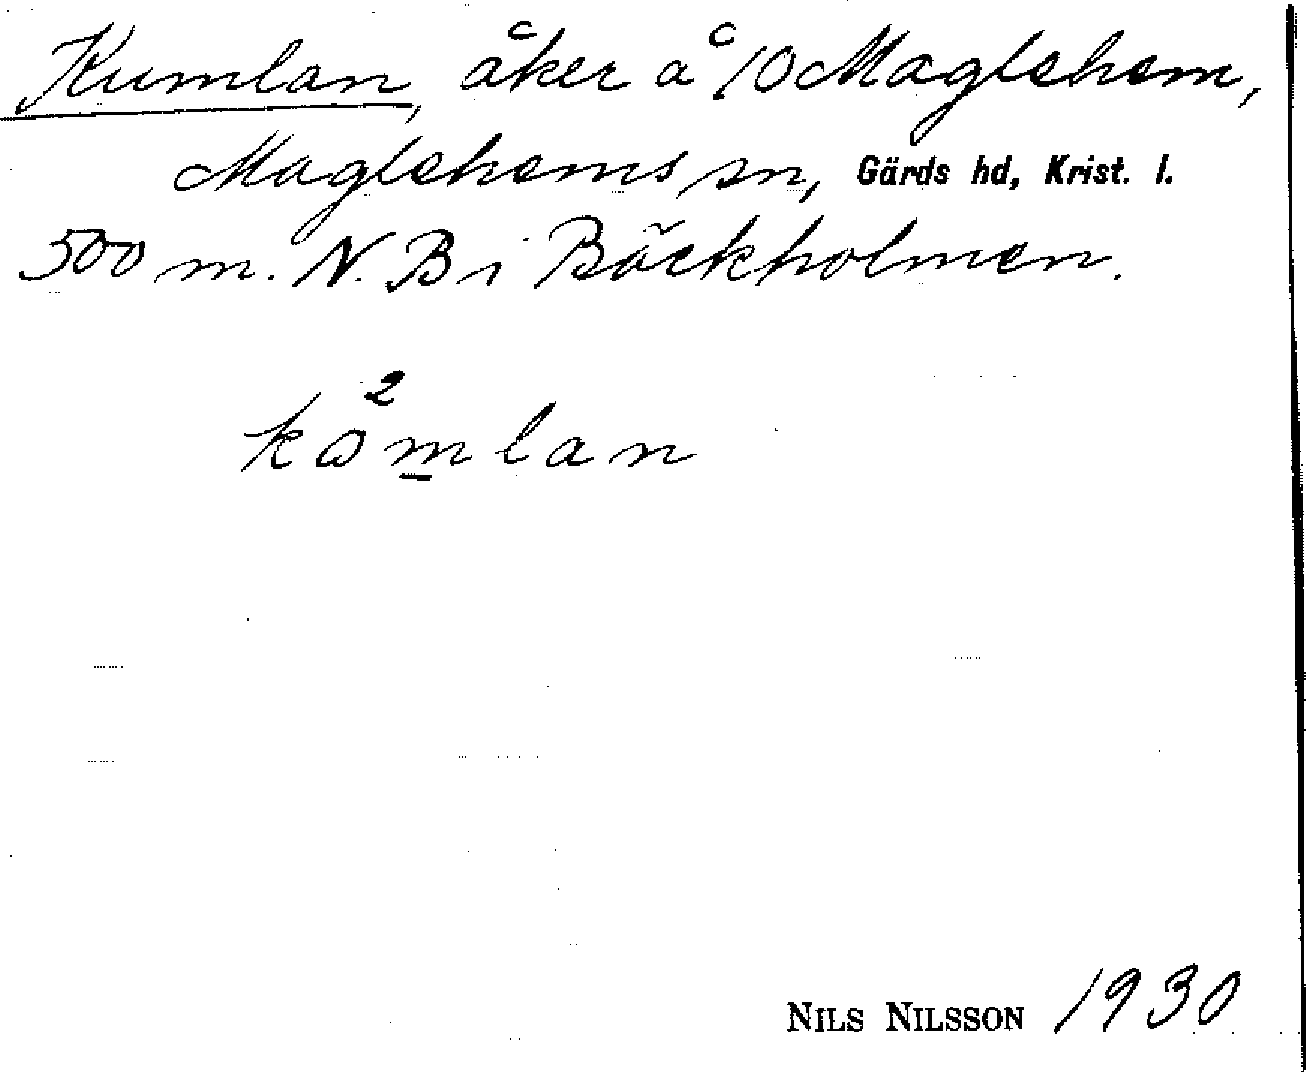 Kumlan, åker å 10 Maglehem,
Maglehems sn, Gärds hd, Krist. l.
500 m. N. B i Bäckholmen.
2
kωmlan
NILS NILSSON 1930